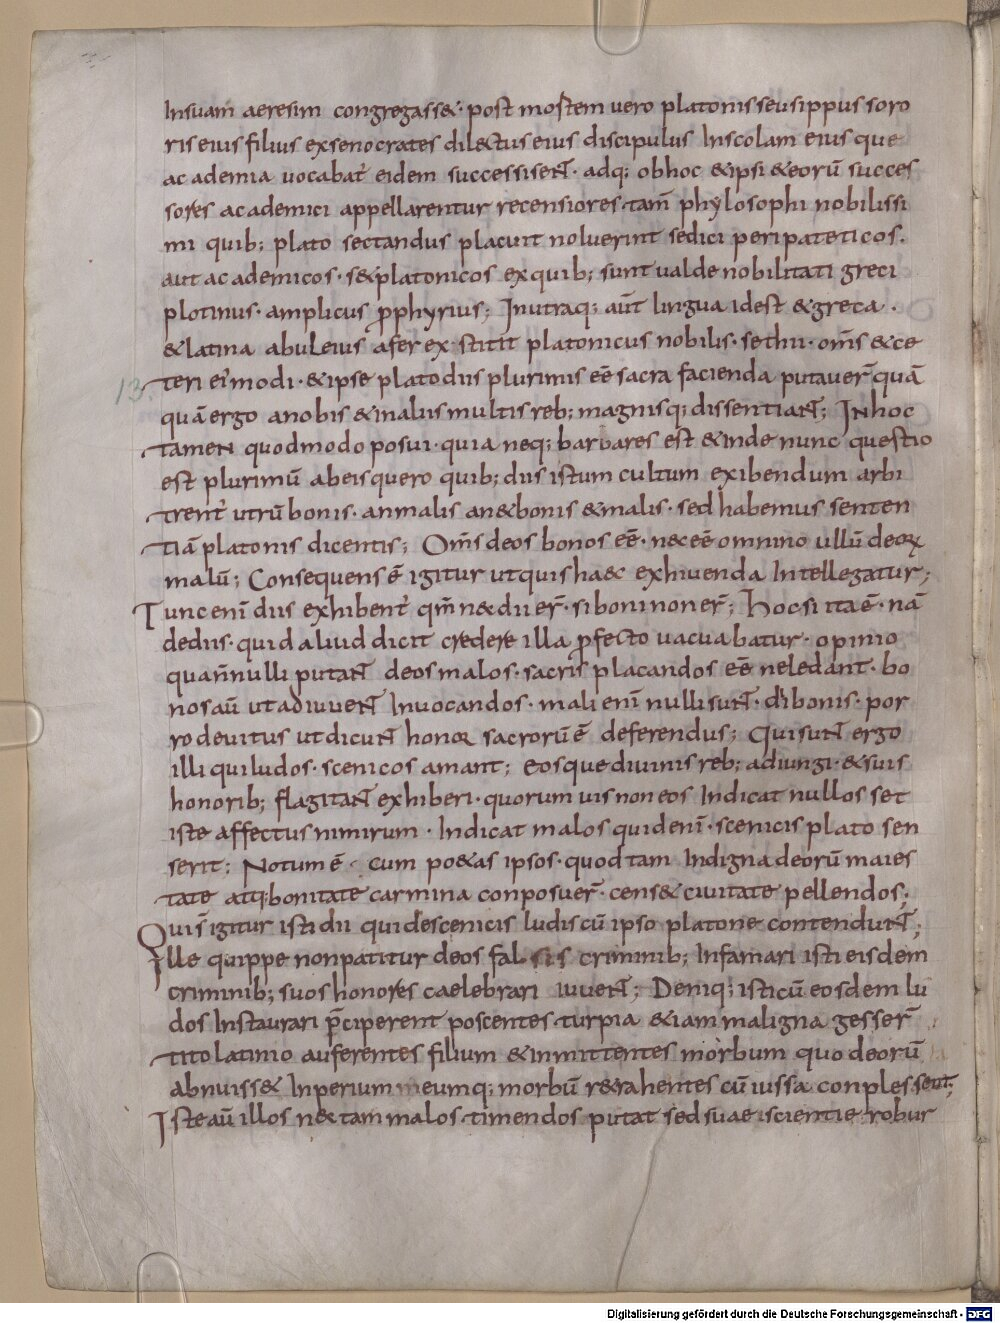 Insuam aeresim congregass&· post mostem uero platonis seusippus soro
ris eius filius exsenocrates dil&ctus eius discipulus Inscolam eius que
academia uocabat᷑ eidem successisent· adq; obhoc &ipsi &eorū succes
sores academici appellarentur recensiores tam̄ phylosophi nobilissi
mi quib; plato sectandus placuit noluerint sedici peripateticos·
aut academicos· s&platonicos exquib; sunt ualde nobilitati greci
plotinus· amplicus ꝓphyrius; Inutraq; aūt lingua idest &greca·
&latina abuleius afer ex stitit platonicus nobilis· sethii· om̄s &ce
13. teri ei᷑modi· &ipse plato diis plurimis eē sacra facienda putauer̄ quā
quā ergo anobis &inaliis multis reb; magnisq; dissentiant; Inhoc
tamen quodmodo posui· quia neq; barbares est &inde nunc questio
est plurimū abeis quero quib; diis istum cultum exibendum arbi
trent᷑ utrū bonis· anmalis an&bonis &malis· sed habemus senten
tiā platonis dicentis; Om̄s deos bonos eē· nec eē omnino ullū deoꝝ
malū; Consequens ē igitur utquis ha&c exhiuenda Intellegatur;
Tunc enī diis exhibent᷑ qm̄ n&dii er̄· si boni non er̄; Hoc si ita ē· nā
dediis· quid aliud dicit credere illa ꝓfecto uacuabatur· opinio
qua n̄nulli putant deos malos· sacris placandos eē neledant· bo
nos aū ut adiuuent Inuocandos· mali enī nulli sunt· di᷑bonis· por
ro deuitus ut dicunt honor sacrorū ē deferendus; Qui sunt ergo
illi qui ludos· scenicos amant; eosque diuinis reb; adiungi· &suis
honorib; flagitant exhiberi· quorum uis non eos Indicat nullos set
iste affectus nimirum· Indicat malos quid enī· scenicis plato sen
serit; Notum ē· cum po&as ipsos· quod tam Indigna deorū maies
tate atq; bonitate carmina conposuer̄· cens& ciuitate pellendos;
Qui s̄ igitur isti dii qui descenicis ludis cū ipso platone contendunt;
Ille quippe non patitur deos falsis criminib; Infamari isti eisdem
criminib; suos honores caelebrari iuuent; Deniq; isti cū eosdem lu
dos Instaurari p̄ciperent poscentes turpia &iam maligna gesser̄
tito latinio auferentes filium &inmittentes morbum quo deorū
abnuiss& Inperium eumq; morbū r&rahentes cū iussa conplessent;
Iste aū illos n&c tam malos· timendos putat sed suae iscientie robur